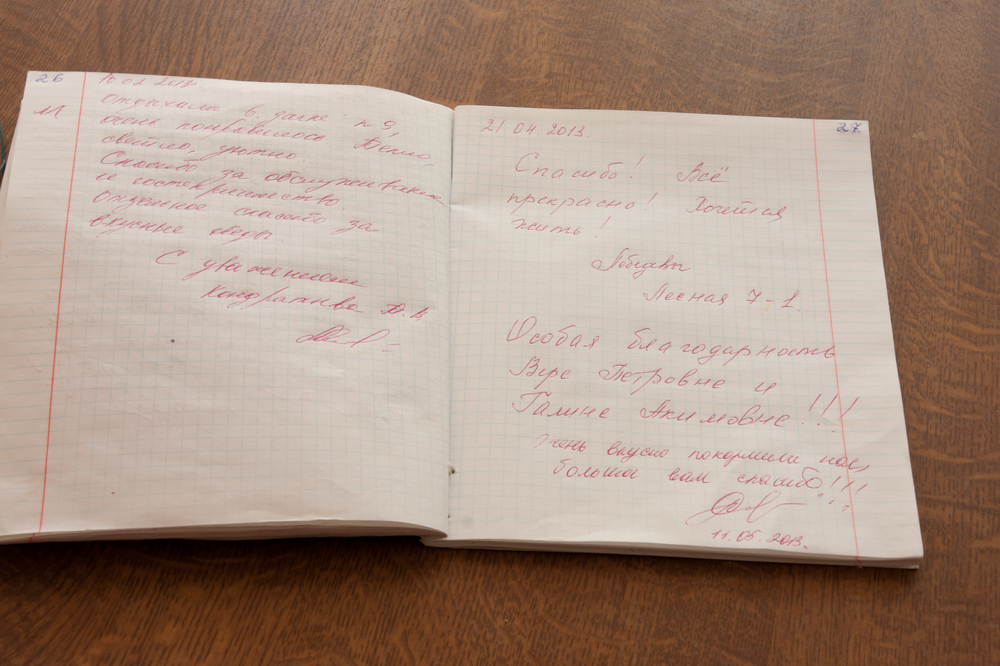 26
10.02.2013
Отдыхали в дачке п 9,
очень понравилось. Тепло,
светло, уютно.
Спасибо за обслуживание
и гостеприимство
Отдельное спасибо за
вкусные обеды
С уважением
Кондратьева
27
21.04.2013.
Спасибо! Всё
прекрасно! Хочется
жить!
Лесная 7-1.
Особая благодарность
Вере Петровне и
Галине Акимовне!!!
Очень вкусно покормили нас,
большое вам спасибо!!!
11.05.2013.